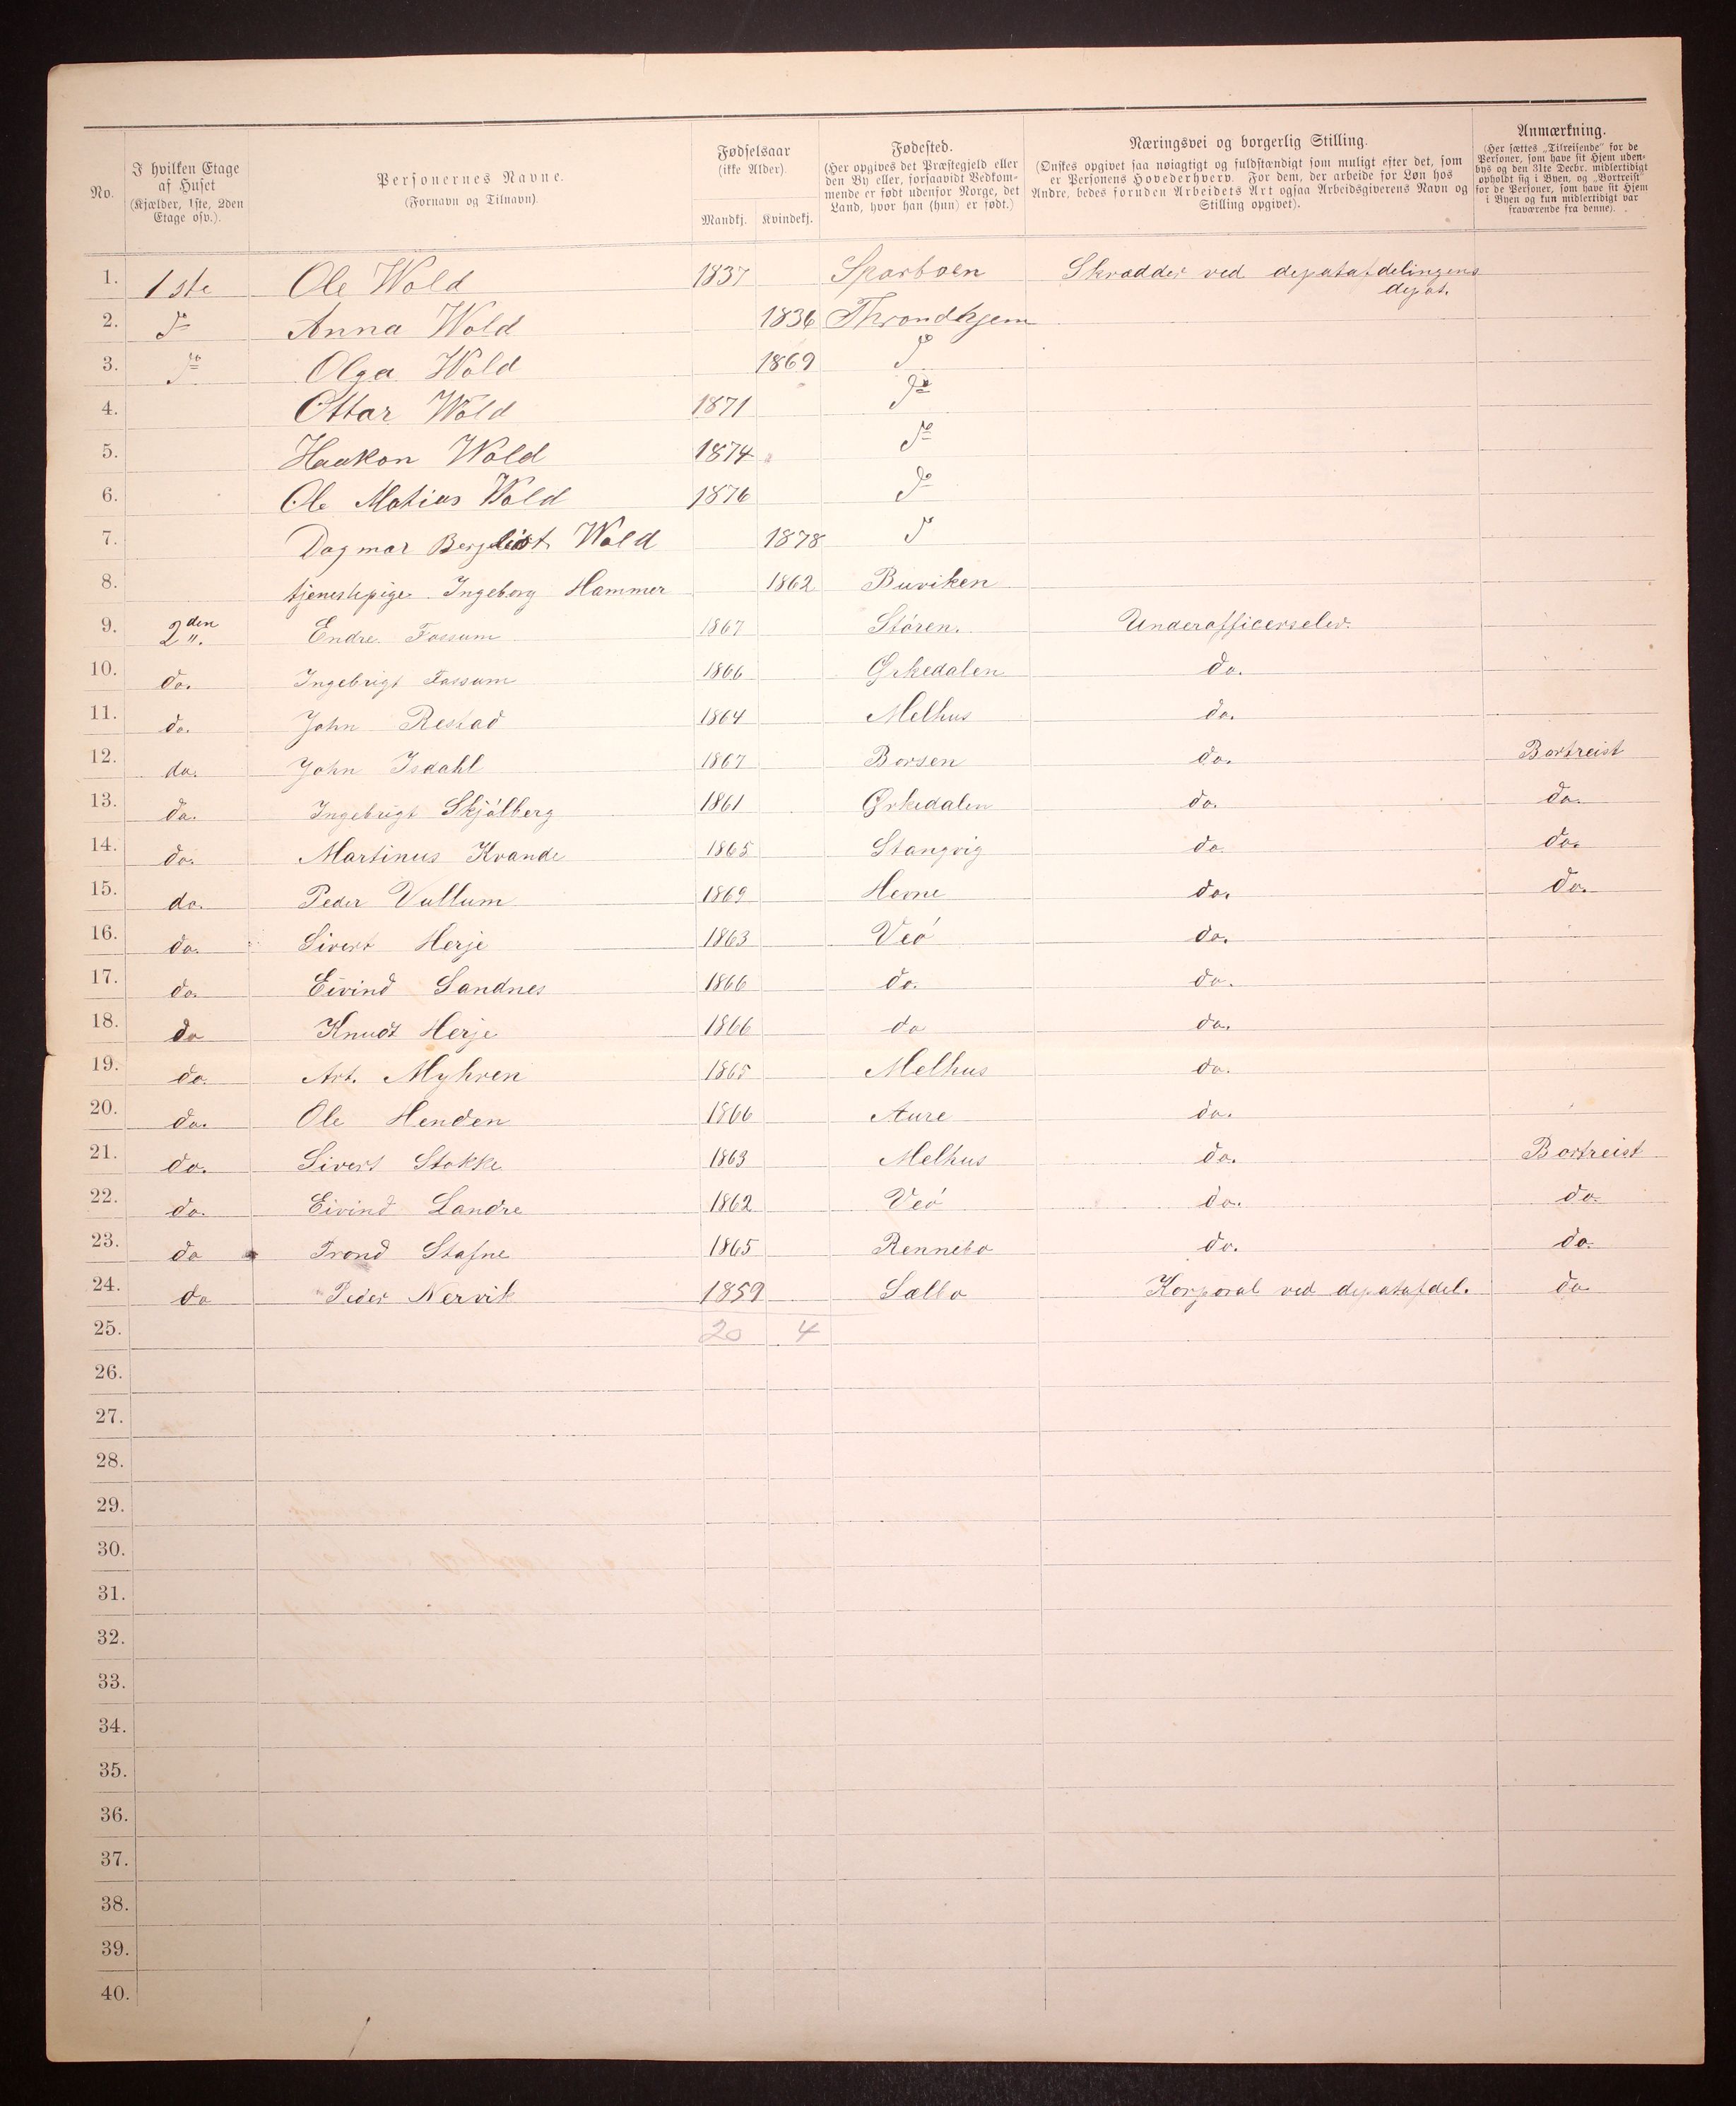 No.
I hvilken Etage af Huset (Kjælder, 1ste, 2den Etage osv.).
Personernes Navne. (Fornavn og Tilnavn).
Fødselsaar (ikke Alder).
Mandkj. Kvindekj.
Fødested. (Her opgives det Præstegjeld eller den By eller, forsaavidt Vedkommende er født udenfor Norge, det Land, hvor han (hun) er født.)
Næringsvei og borgerlig Stilling. (Ønskes opgivet saa nøiagtigt og fuldstændigt som muligt efter det, som er Personens Hovederhverv. For dem, der arbeide for Løn hos Andre, bedes foruden Arbeidets Art ogsaa Arbeidsgiverens Navn og Stilling opgivet).
Anmærkning. (Her sættes „Tilreisende“ for de Personer, som have sit Hjem udenbys og den 31te Decbr. midlertidigt opholdt sig i Byen, og „Bortreist“ for de Personer, som have sit Hjem i Byen og kun midlertidigt var fraværende fra denne).
1. 1ste Ole Wold 1837 Sparboen Skrædder ved depotafdelingens depot.
2. do Anna Wold 1836 Throndhjem
3. do Olga Wold 1869 do
4. Ottar Wold 1871 do
5. Haakon Wold 1874 do
6. Ole Matias Wold 1876 do
7. Dagmar Bergliot Wold 1878 do
8. tjenestepige Ingeborg Hammer 1862 Buviken
9. 2den ". Endre Fossum 1867 Stören. Underofficerselev.
10. do. Ingebrigt Fossum 1866 Ørkedalen do.
11. do. John Restad 1864 Melhus do.
12. do. John Isdahl 1867 Borsen do. Bortreist
13. do. Ingebrigt Skjölberg 1861 Ørkedalen do. do.
14. do. Martinus Kvande 1865 Stangvig do. do.
15. do. Peder Vullum 1869 Hevne do. do.
16. do. Sivert Herje 1863 Veö do.
17. do. Eivind Sandnes 1866 do. do.
18. do Knudt Herje 1866 do do.
19. do. Art. Myhren 1865 Melhus do.
20. do. Ole Henden 1866 Aure do.
21. do. Sivert Stokke 1863 Melhus do. Bortreist
22. do. Eivind Landre 1862 Veö do. do.
23. do Trond Stafne 1865 Rennebo do. do.
24. do Peder Nervik 1859 Sælbo Korporal ved depotafdel. do
25. 20 4
26.
27.
28.
29.
30.
31.
32.
33.
34.
35.
36.
37.
38.
39.
40.